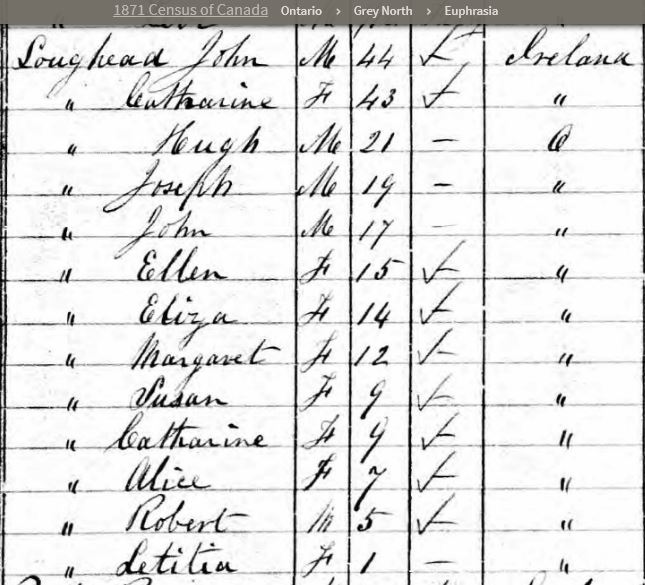 1871 Census of Canada Ontario › Grey North › Euphrasia
Loughead John M 44 Ireland
" Catharine F 43 "
" Hugh M 21 — O
" Joseph M 19 — "
" John M 17 — "
" Ellen F 15 "
" Eliza F 14 "
" Margaret F 12 "
" Susan F 9 "
" Catharine F 9 "
" Alice F 7 "
" Robert M 5 "
" Letitia F 1 — "